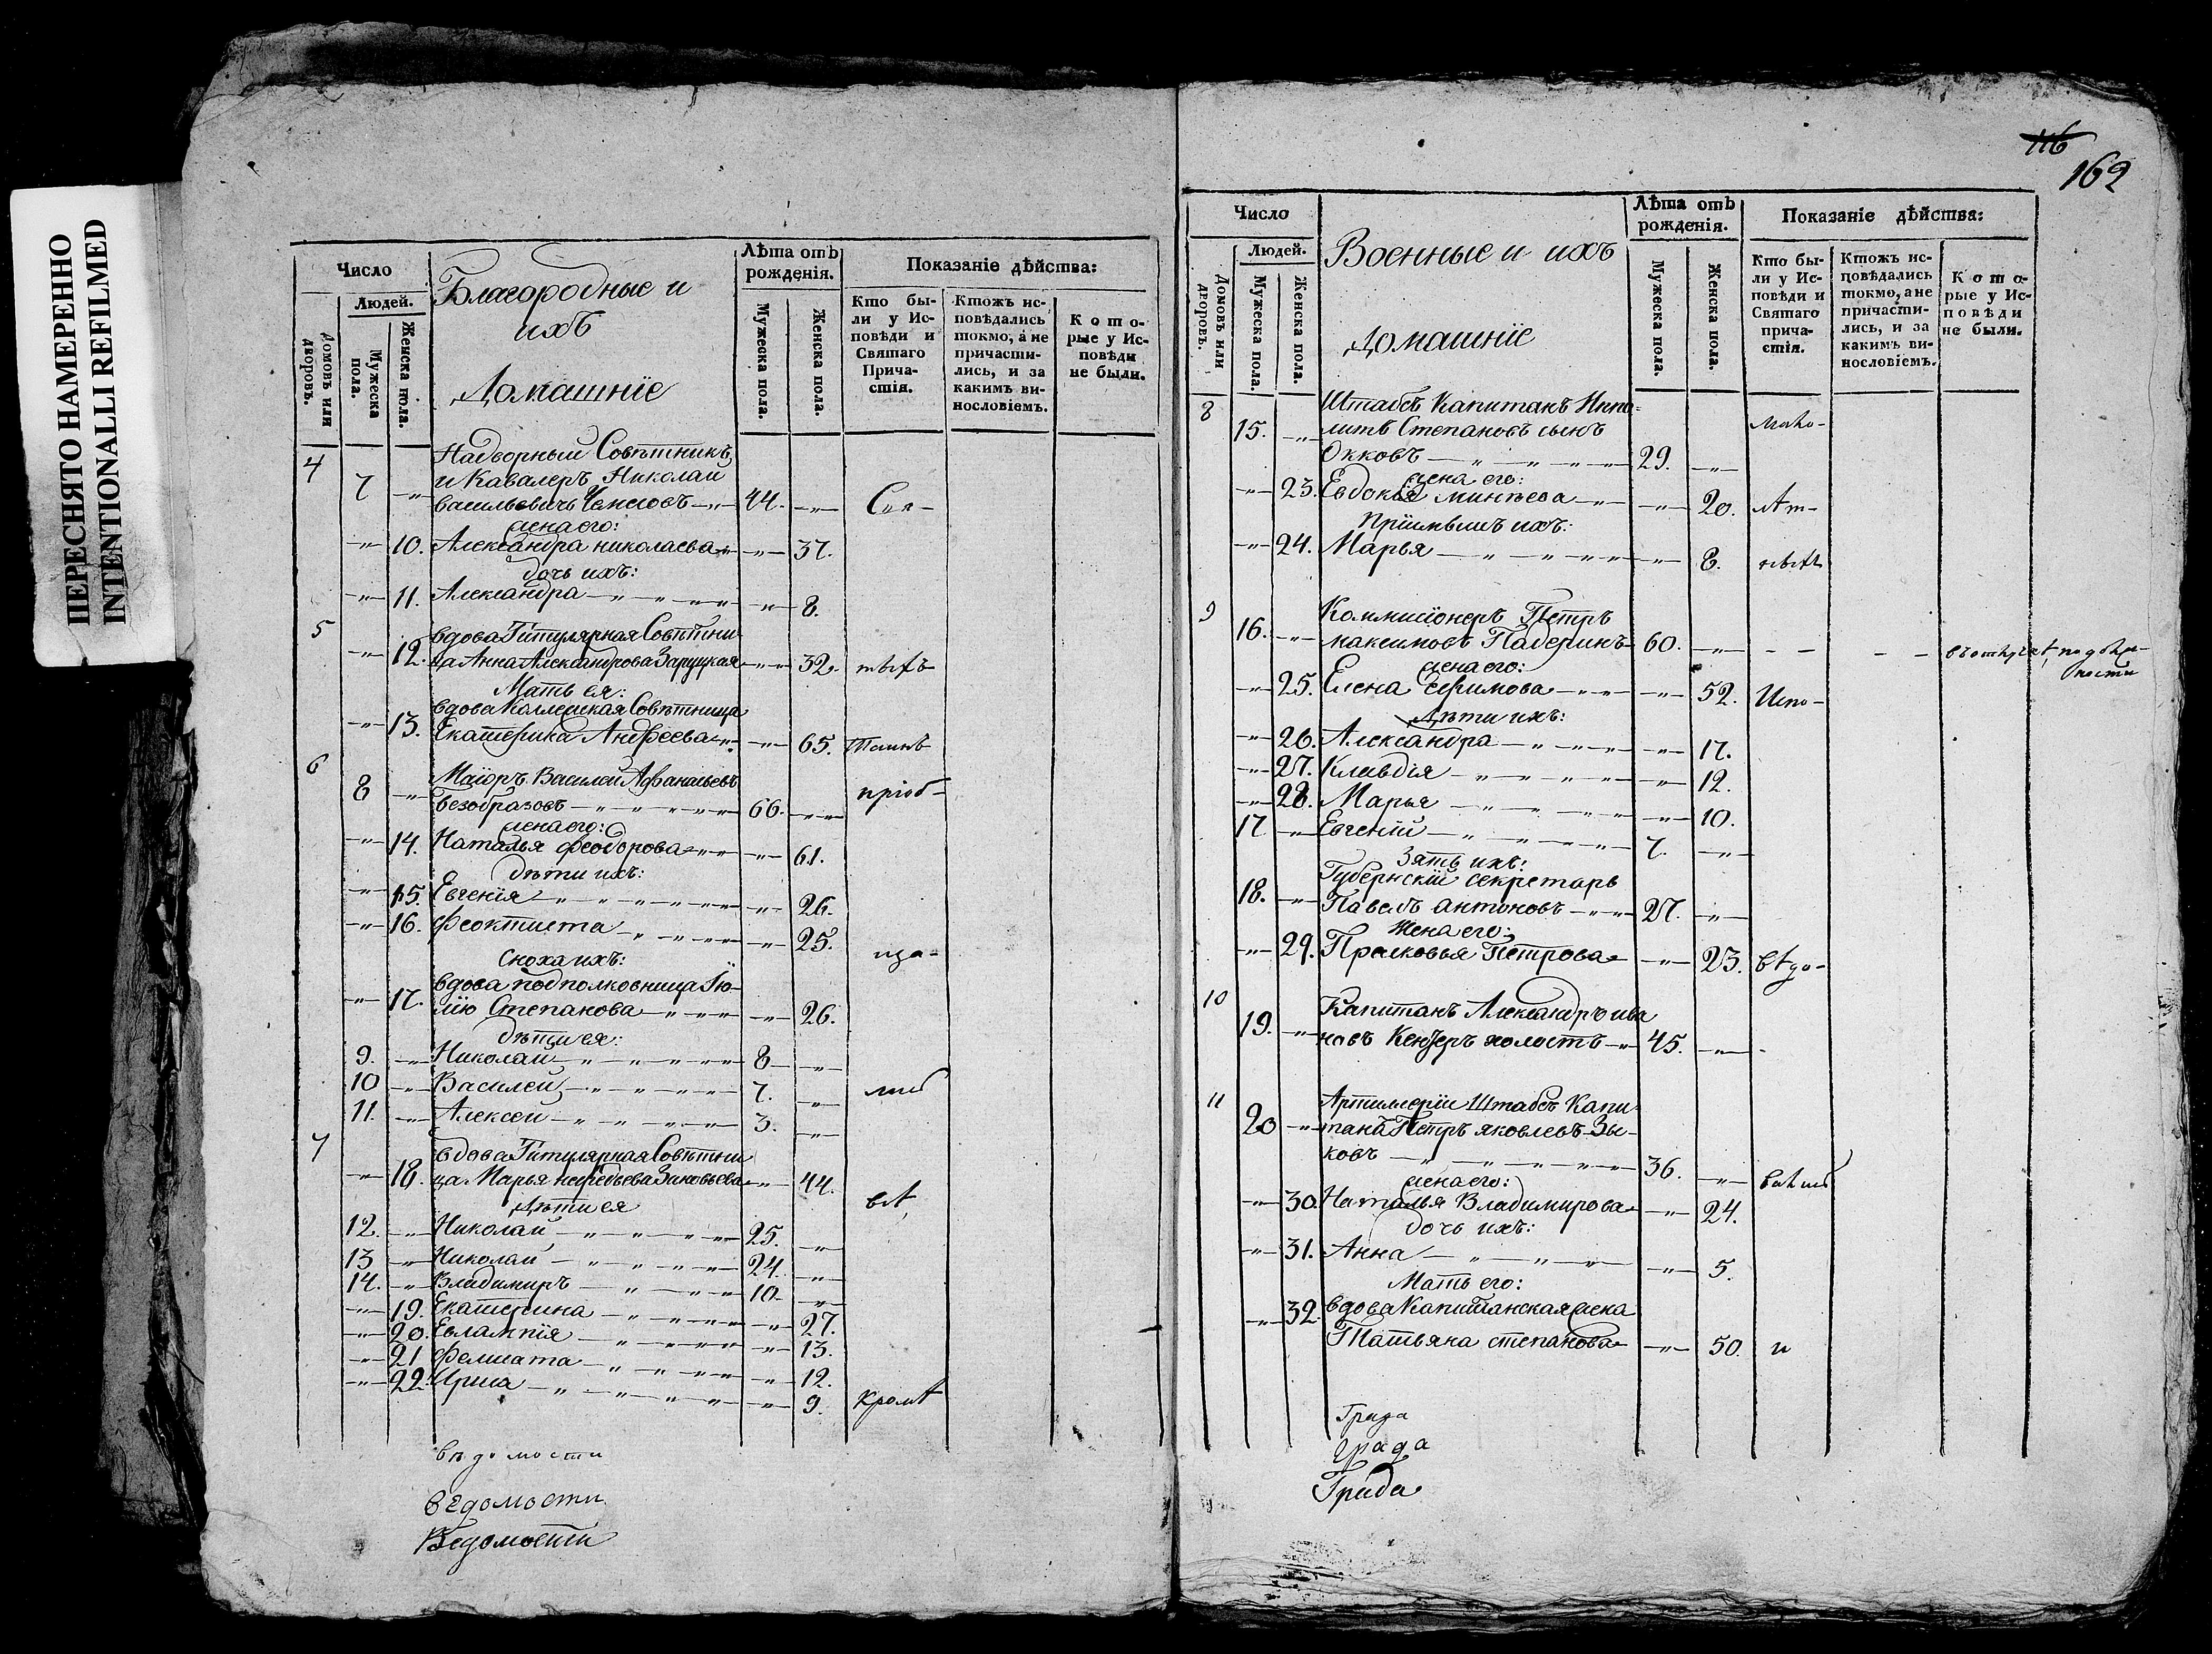 ПЕРЕСНЯТО НАМЕРЕННО
INTENTIONALLI REFILMED
Число
Людей.
Домовъ или дворовъ.
Мужеска пола.
Женска пола.
Благородные и
ихъ
Домашніе
Лѣта отъ рожденія.
Мужеска пола.
Женска пола.
Показаніе дѣйства:
Кто бы-
ли у Ис-
повѣди и
Святаго
Прича-
стія.
Ктожъ ис-
повѣдались
токмо, а не
причасти-
лись, и за
какимъ ви-
нословіемъ.
Кото-
рые у Ис-
повѣди
не были.
4
Надворный Совѣтникъ
и Кавалеръ Николай
7 Васильевичь 44.
жена его:
10. Александра Николаева 37.
дочь ихъ:
11. Александра 8.
5 вдова Титулярная Совѣтни
12. ца Анна Александрова Заруцкая 32.
Мать ея:
вдова Коллежская Совѣтница
13. Екатерина Андреева 65.
6 Маіоръ Василей Афанасьевъ
8 Безобразовъ 66. пріоб-
жена его:
14. Наталья Феодорова 61.
дѣти ихъ:
15. Евгенія 26.
16. Феоктиста 25.
Сноха ихъ: ща-
вдова подполковница Ю-
17. лію Степанова 26.
дѣти ея:
9. Николай 8
10 Василей 7.
11. Алексей 3.
7 вдова Титулярная Совѣтни
18. ца Марья Зиновьева 44.
Дѣти ея
12. Николай 25.
13 Николай 24.
14. Владимиръ 10.
19. Екатерина 27.
20. Евлампія 13.
21 12.
22. 9. кромѣ
вѣдомости
ведомости
Ведомости
116
162
Число
Людей.
Домовъ или дворовъ.
Мужеска пола.
Женска пола.
Военные и ихъ
Домашніе
Лѣта отъ рожденія.
Мужеска пола.
Женска пола.
Показаніе дѣйства:
Кто бы-
ли у Ис-
повѣди и
Святаго
прича-
стія.
Ктожъ ис-
повѣдались
токмо, а не
причасти-
лись, и за
какимъ ви-
нословіемъ.
Кото-
рые у Ис-
повѣди
не были.
8 Штабсъ Капитанъ Ипо-
15. литъ Степановъ сынъ
Окковъ 29.
жена его:
23. Евдокія Минѣева 20.
Пріимышъ ихъ:
24. Марья 8.
9 Коммисіонеръ Петръ
16. Максимовъ Падеринъ 60.
жена его:
25. Елена Ефимова 52. Испо-
Дѣти ихъ:
26. Александра 17.
27. Клавдія 12.
28. Марья 10.
17 Евгеній 7.
Зять ихъ:
Губернскій секретарь
18. Павелъ Антоновъ 27.
Жена его:
29. Прасковья Петрова 23. вѣдо-
10 Капитанъ Александръ Ива
19. новъ холостъ 45.
11 Артиллеріи Штабсъ Капи
20 танъ Петръ Яковлевъ Зы-
ковъ 36.
жена его:
30. Наталья Владимирова 24.
дочь ихъ:
31. Анна 5.
Мать его:
32. вдова Капитанская жена
Татьяна Степанова 50. и
Града
Града
Града